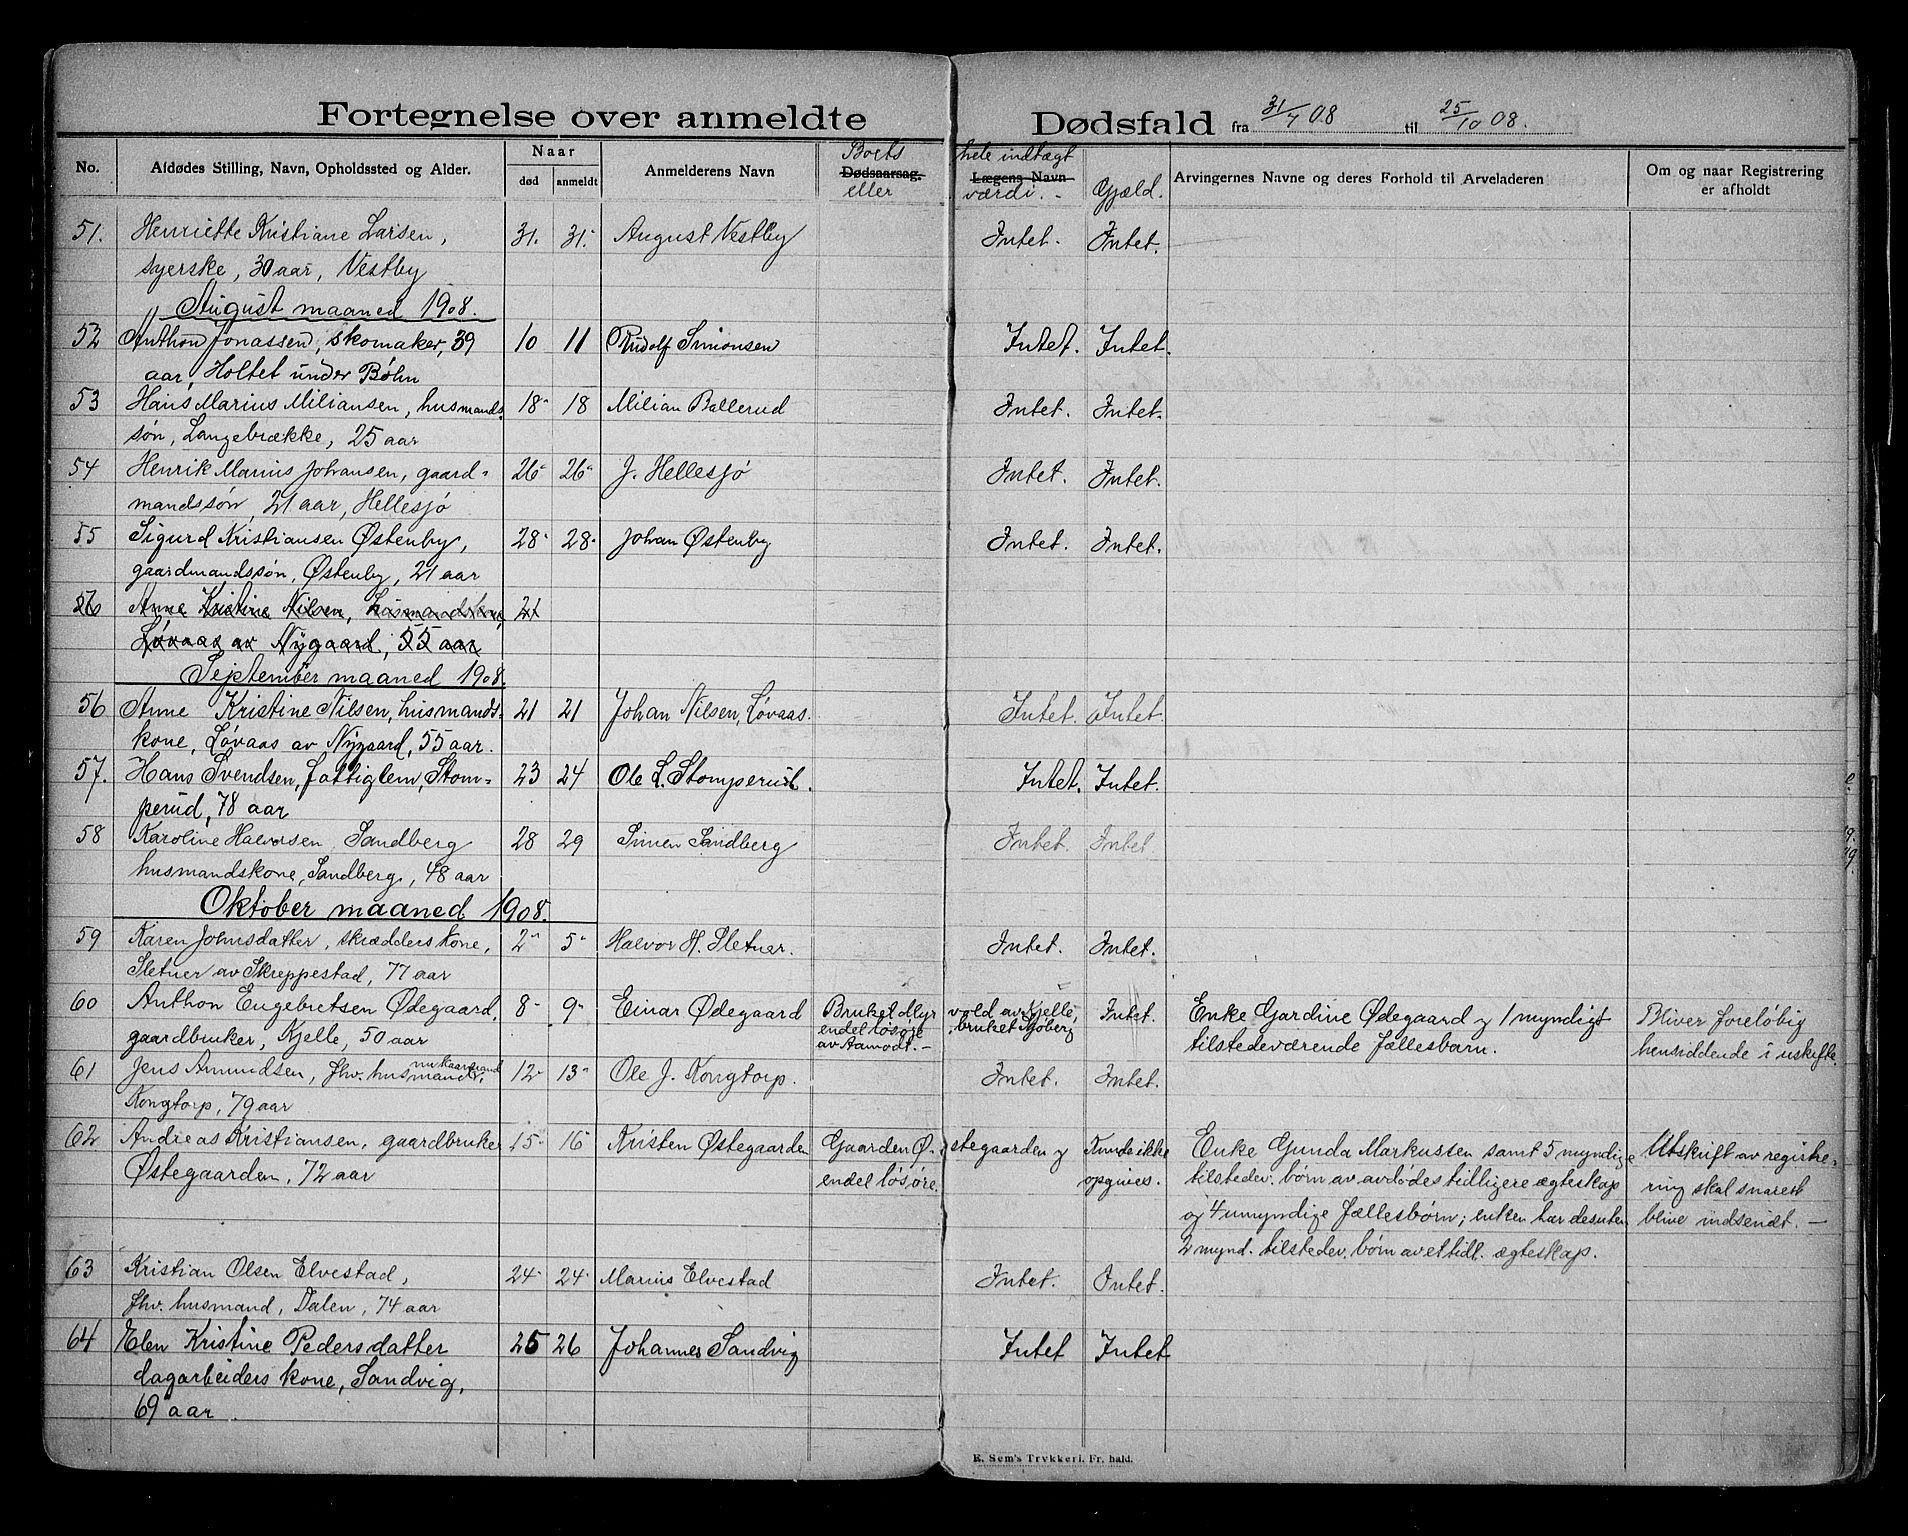 Fortegnelse over anmeldte Dødsfald fra 31/7 08 til 25/10 08.
No. Afdødes Stilling, Navn, Opholdssted og Alder. Naar død anmeldt Anmelderens Navn Boets Dødsaarsag. eller hele indtægt Lægens Navn værdi. - Gjæld. Arvingernes Navne og deres Forhold til Arveladeren Om og naar Registrering er afholdt
51. Henriette Kristiane Larsen, 31. 31.- August Vestby Intet. Intet.
syerske, 30 aar, Vestby
August maaned 1908.
52 Anthon Jonassen, skomaker, 39 10 11 Rudolf Simonsen Intet. Intet.
aar, Holtet under Bøhn
53 Hans Marius Miliansen, husmands 18- 18 Milian Ballerud Intet. Intet.
søn, Langebrække, 25 aar
54 Henrik Marius Johansen, gaard- 26- 26- J. Hellesjø Intet. Intet.
mandssøn, 21 aar, Hellesjø
55 Sigurd Kristiansen Østenby, 28- 28- Johan Østenby Intet. Intet.
gaardmandssøn, Østenby, 21 aar
56 Anne Kristine Nilsen, husmandskone, 21
Løvaas av Nygaard, 55 aar
September maaned 1908.
56 Anne Kristine Nilsen, husmands- 21 21 Johan Nilsen, Løvaas. Intet. Intet.
kone, Løvaas av Nygaard, 55 aar.
57. Hans Svendsen, fattiglem, Stom- 23 24 Ole L. Stomperud. Intet. Intet.
perud, 78 aar
58 Karoline Halvorsen Sandberg 28 29 Simen Sandberg Intet. Intet.
husmandskone, Sandberg, 48 aar
Oktober maaned 1908.
59 Karen Johnsdatter, skrædders kone, 2- 5- Halvor H. Sletner. Intet. Intet.
Sletner av Skreppestad, 77 aar
60 Anthon Engebretsen Ødegaard, 8- 9- Einar Ødegaard Bruket Myr vold av Kjelle, Intet. Enke Gardine Ødegaard og 1 myndigt Bliver foreløbig
endel løsøre bruket Sjøberg
gaardbruker, Kjelle, 50 aar av Aamodt. - tilstedeværende fællesbarn. hensiddende i uskifte
61 Jens Amundsen, fhv. husmand, nu kaarmand 12- 13- Ole J. Kongtorp. Intet. Intet.
Kongtorp, 79 aar
62 Andreas Kristiansen, gaardbruker 15- 16- Kristen Østegaarden Gaarden Ø- stegaarden og Kunde ikke Enke Gunda Markussen samt 5 myndige Utskrift av registre-
Østegaarden, 72 aar endel løsøre. opgives. tilstedev. børn av avdødes tidligere ægteskap ring skal snarest
og 4 umyndige fællesbørn; enken har desuten blive indsendt. -
2 mynd. tilstedev. børn av et tidl. ægteskap.
63 Kristian Olsen Elvestad, 24- 24- Marius Elvestad Intet. Intet.
fhv. husmand, Dalen, 74 aar
64 Elen Kristine Pedersdatter 25 26 Johannes Sandvig Intet Intet
dagarbeiders kone, Sandvig,
69 aar
E. Sem's Trykkeri, Fr. hald.